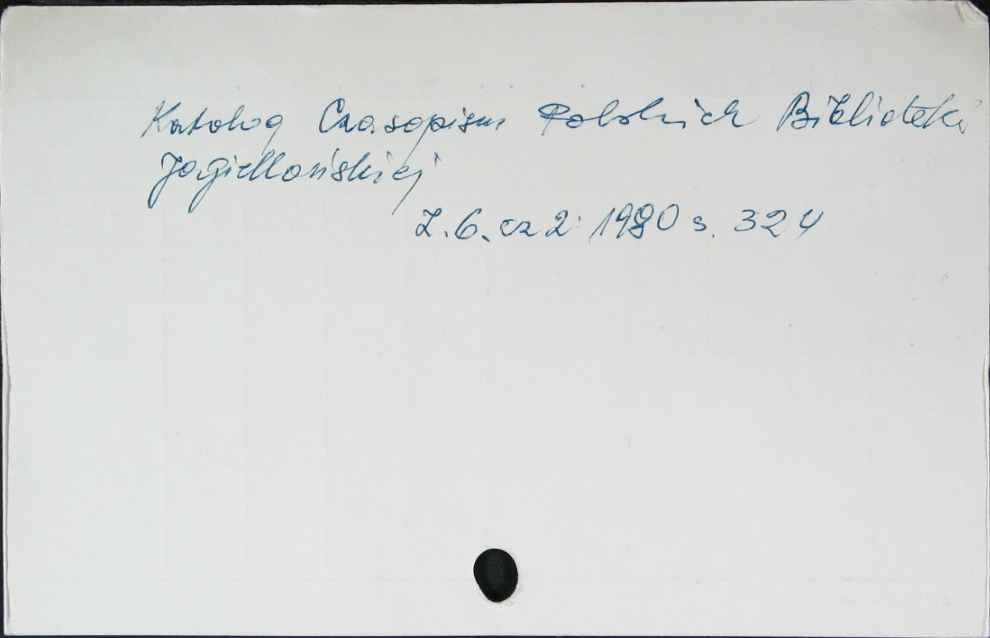 Katalog Czasopism Polskich Biblioteki
Jagiellońskiej
Z. 6. cz 2 1980 s. 324